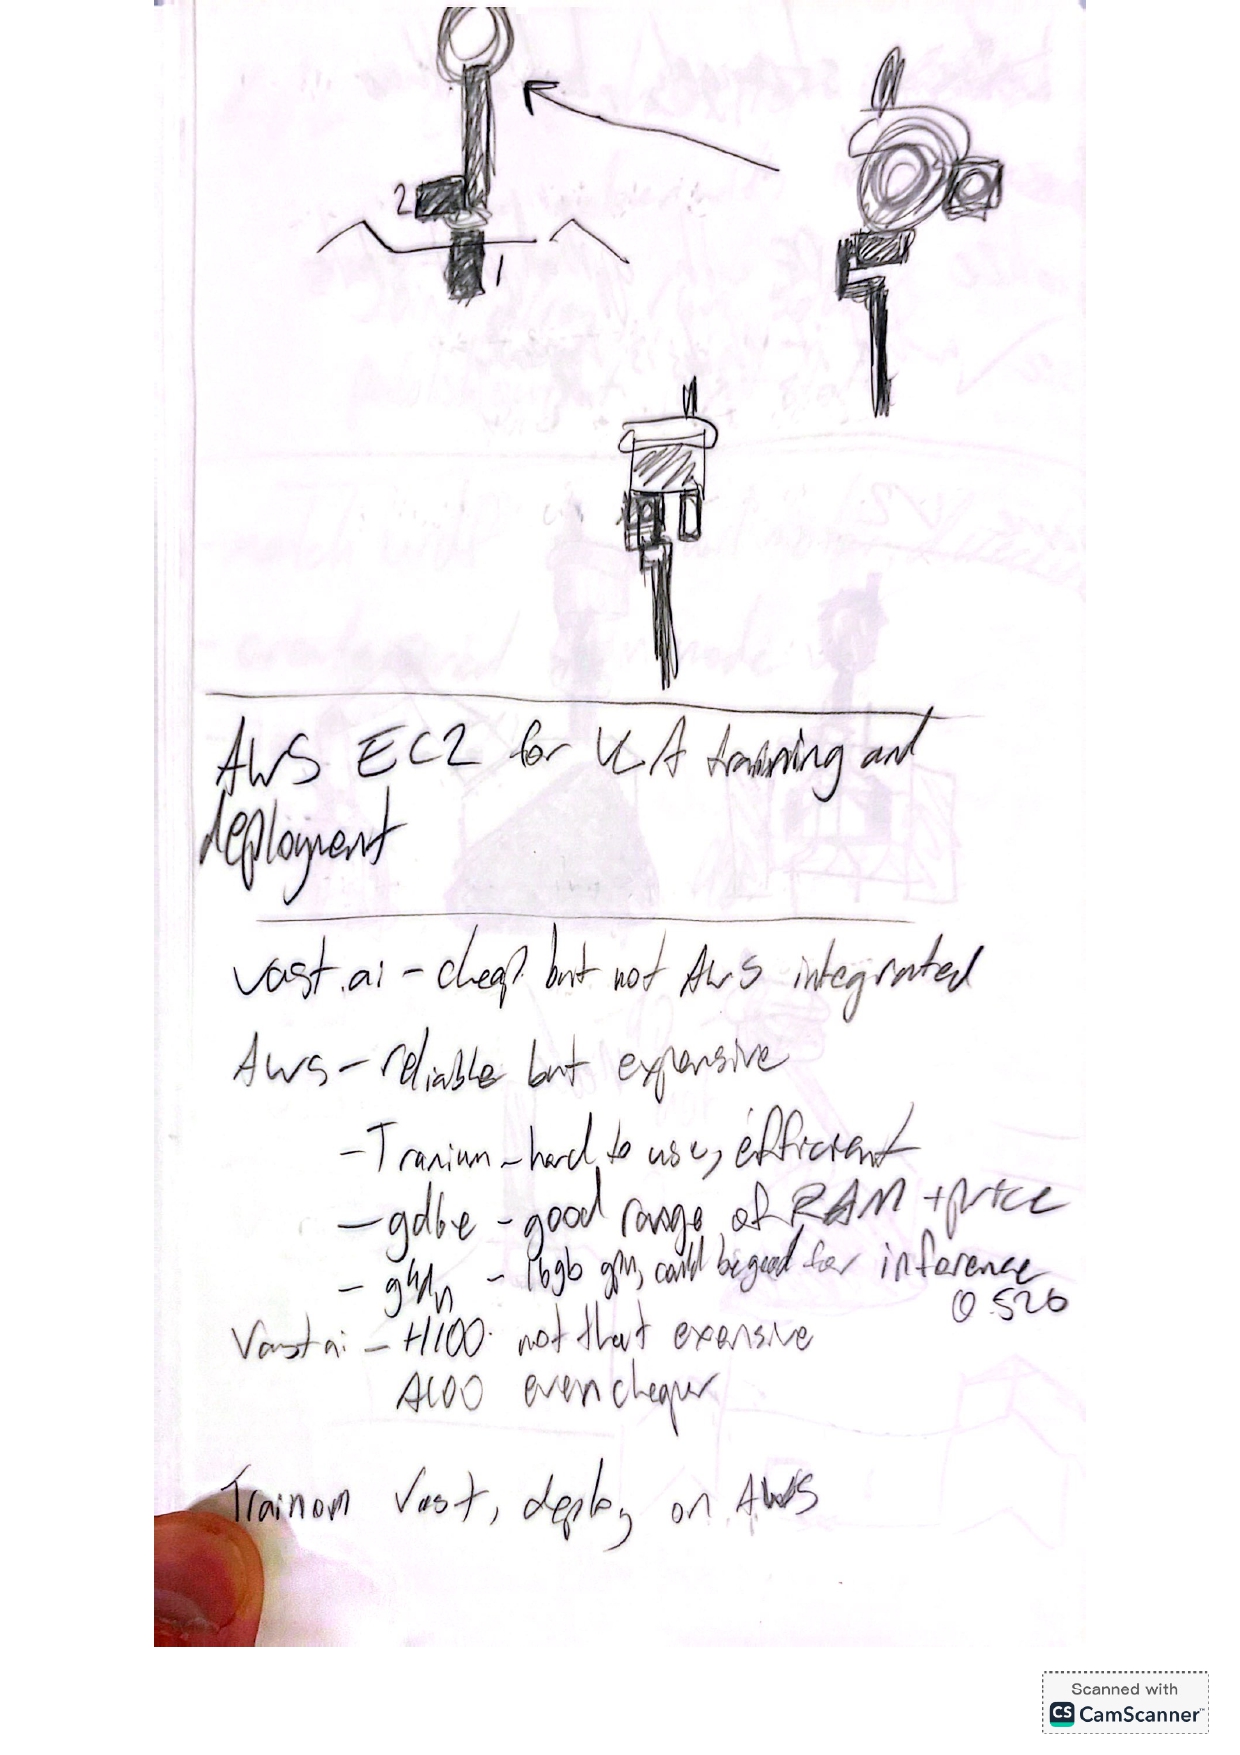 2
1
AWS EC2 for VLA training and
deployment
vast.ai - cheap but not AWS integrated
AWS - reliable but expensive
- Tranium - hard to use, efficient
- gd6e - good range of RAM + price
- g4dn - 16gb gpu, could be good for inference
0.526
Vast ai - H100 not that exensive
A100 even cheaper
Train on Vast, deploy on AWS
Scanned with
CS CamScanner